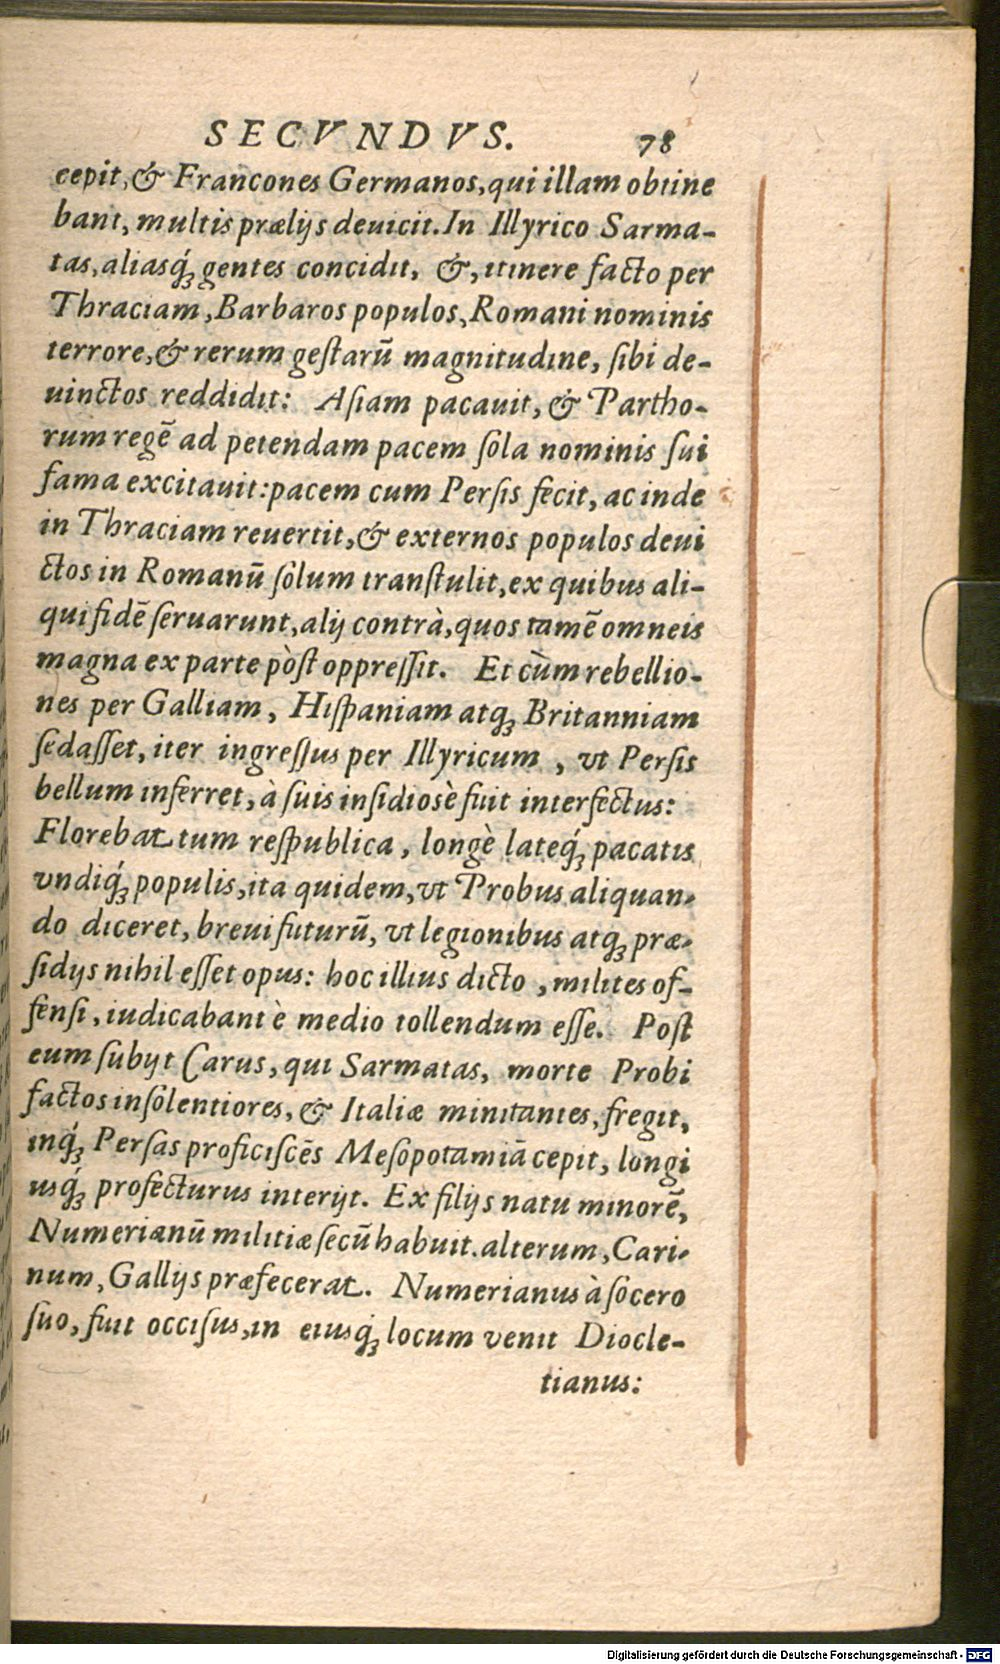 SECVNDVS. 78
cepit, & Francones Germanos, qui illam obtine
bant, multis prælijs deuicit. In Illyrico Sarma-
tas, aliasq́ꝫ gentes concidit, &, itinere facto per
Thraciam, Barbaros populos, Romani nominis
terrore, & rerum geſtarũ magnitudine, ſibi de-
uinctos reddidit: Aſiam pacauit, & Partho-
rum regẽ ad petendam pacem ſola nominis ſui
fama excitauit: pacem cum Perſis fecit, ac inde
in Thraciam reuertit, & externos populos deui
ctos in Romanũ ſolum tranſtulit, ex quibus ali-
qui fidẽ ſeruarunt, alij contrà, quos tamẽ omneis
magna ex parte pòſt oppreſſit. Et cùm rebellio-
nes per Galliam, Hiſpaniam atqꝫ Britanniam
ſedaſſet, iter ingreſſus per Illyricum, vt Perſis
bellum inferret, à ſuis inſidiosè fuit interfectus:
Florebat tum reſpublica, longè lateq́ꝫ pacatis
vndiq́ꝫ populis, ita quidem, vt Probus aliquan-
do diceret, breui futurũ, vt legionibus atqꝫ præ-
ſidijs nihil eſſet opus: hoc illius dicto, milites of-
fenſi, iudicabant è medio tollendum eſſe. Poſt
eum ſubijt Carus, qui Sarmatas, morte Probi
factos inſolentiores, & Italiæ minitantes, fregit,
inq́ꝫ Perſas proficiſcẽs Meſopotamiã cepit, longi
usq́ꝫ profecturus interijt. Ex filijs natu minorẽ,
Numerianũ militiæ ſecũ habuit. alterum, Cari-
num, Gallijs præfecerat. Numerianus à ſocero
ſuo, fuit occiſus, in eiusq́ꝫ locum venit Diocle-
tianus:
Digitalisierung gefördert durch die Deutsche Forschungsgemeinschaft - DFG